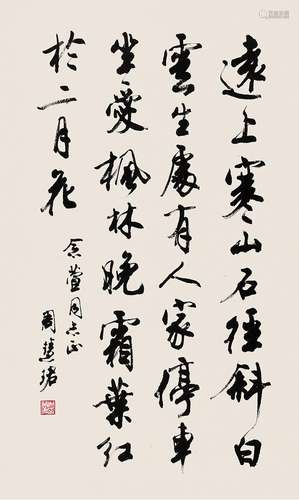 遠上寒山石徑斜白
雲生處有人家停車
坐愛楓林晚霜葉紅
於二月花
念萱同志正
周慧珺